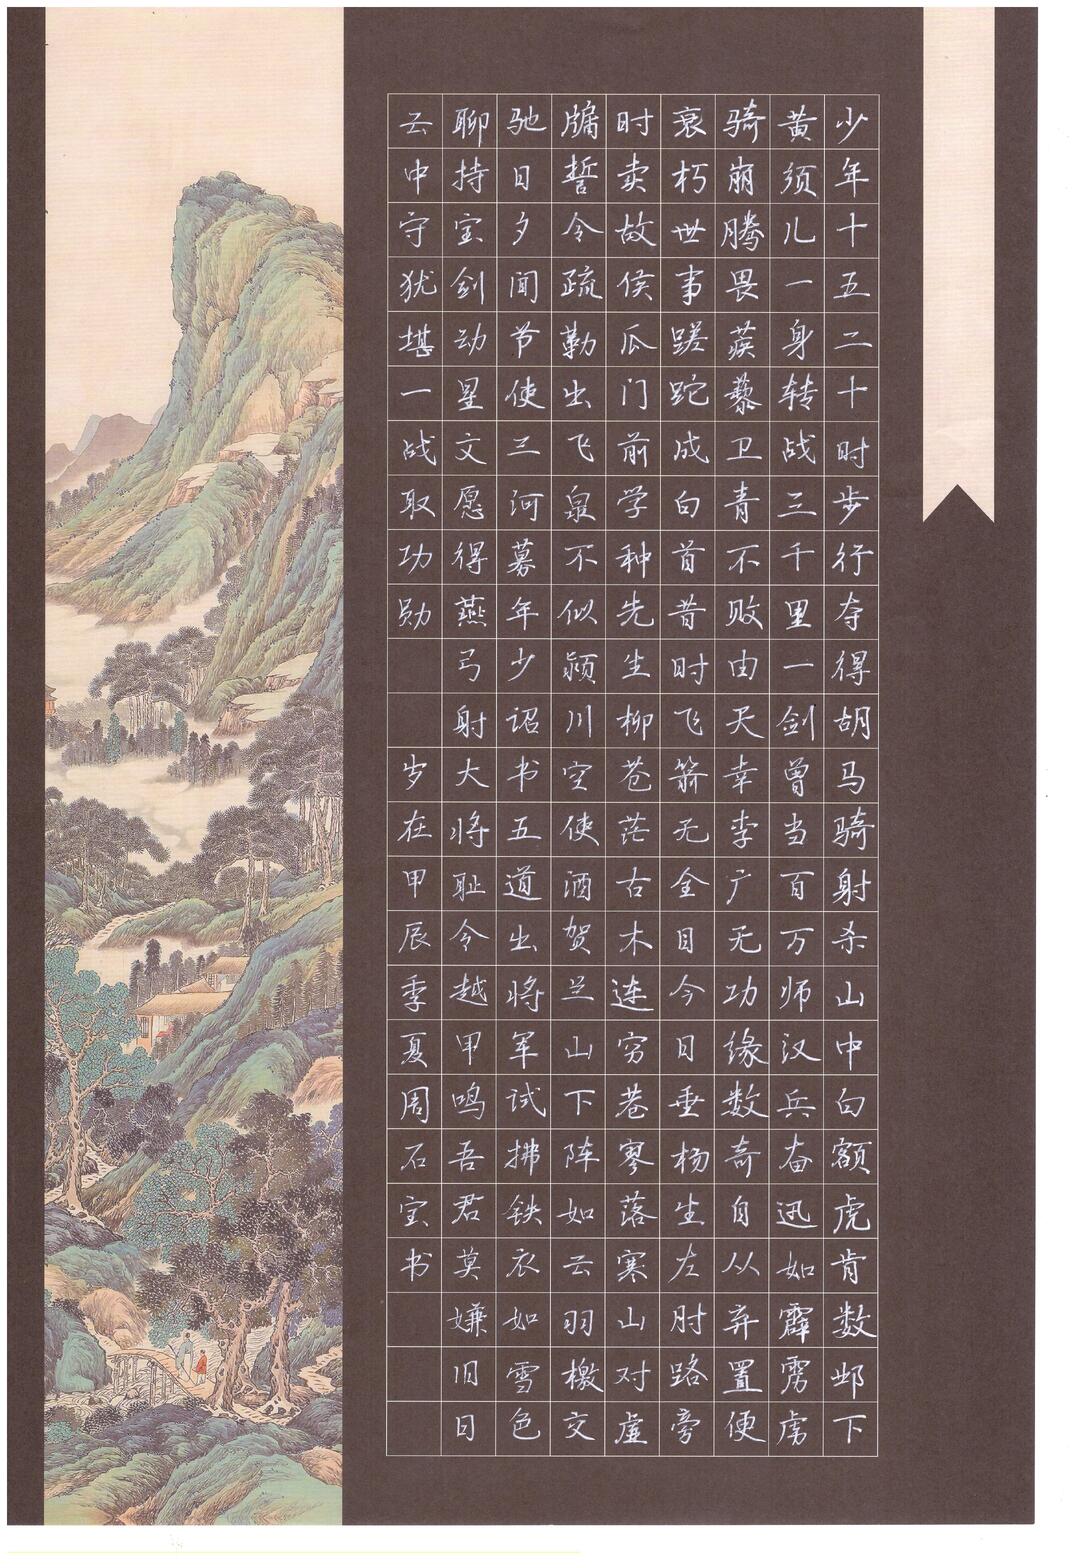 少年十五二十时步行夺得胡马骑射杀山中白额虎肯数邺下
黄须儿一身转战三千里一剑曾当百万师汉兵奋迅如霹雳虏
骑崩腾畏蒺藜卫青不败由天幸李广无功缘数奇自从弃置便
衰朽世事蹉跎成白首昔时飞箭无全目今日垂杨生左肘路旁
时卖故侯瓜门前学种先生柳苍茫古木连穷巷寥落寒山对虚
牖誓令疏勒出飞泉不似颍川空使酒贺兰山下阵如云羽檄交
驰日夕闻节使三河募年少诏书五道出将军试拂铁衣如雪色
聊持宝剑动星文愿得燕弓射大将耻令越甲鸣吾君莫嫌旧日
云中守犹堪一战取功勋 岁在甲辰季夏周石宝书